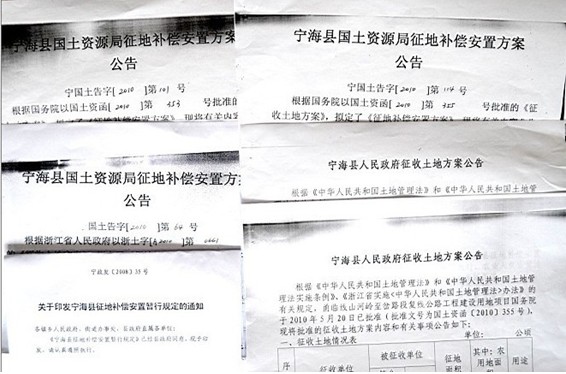 宁海县国土资源局征地补偿安置方案
公告
宁国土告字[2010]第101号
根据国务院以国土资函[2010]第353号批准的
宁海县国土资源局征地补偿安置方案
公告
宁国土告字[2010]第114号
根据国务院以国土资函[2010]第355号批准的《征
收土地方案》，拟定了《征地补偿安置方案》，现将有关内
宁海县国土资源局征地补偿安置方案
公告
国土告字[2010]第64号
根据浙江省人民政府以浙土字[
宁海县人民政府征收土地方案公告
根据《中华人民共和国土地管理法》和《中华人民共和国土地管
宁政发〔2008〕35号
关于印发宁海县征地补偿安置暂行规定的通知
各镇乡人民政府，街道办事处，县政府直属各单位：
《宁海县征地补偿安置暂行规定》已经县政府同意，现予印
发，请认真遵照执行。
宁海县人民政府征收土地方案公告
根据《中华人民共和国土地管理法》和《中华人民共和国土地管
理法实施条例》、《浙江省实施<中华人民共和国土地管理法>办法》的
有关规定，茜临线山河岭至岔路段复线公路工程建设用地项目国务院
于2010年5月20日已批准（批准文号为国土资函[2010]355号），
现将批准的征收土地方案内容和有关事项公告如下：
一、征收土地情况表
单位：公顷
序 征收单位 被征收单位 征地面积 其中：农用地面 用途